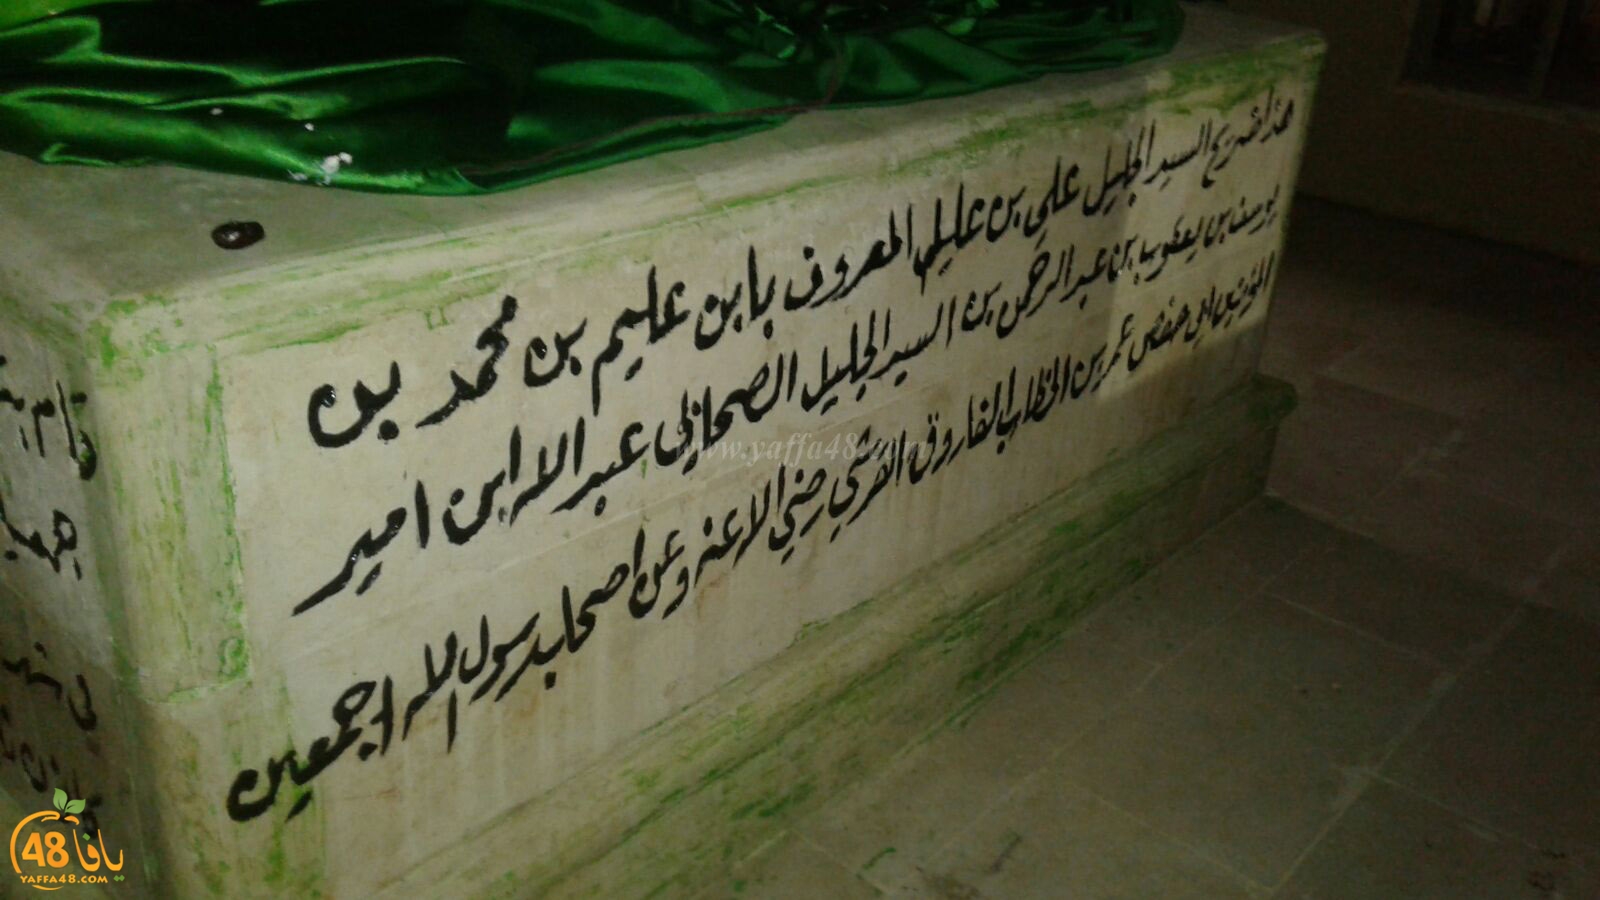 هذا ضريح السيد الجليل علي بن عليم المعروف بابن عليم بن محمد بن
يوسف بن يعقوب بن عبد الرحمن بن السيد الجليل الصحابي عبد الله ابن امير
المؤمنين ابي حفص عمر بن الخطاب الفاروق القرشي رضي الله عنه وعن اصحاب رسول الله اجمعين
قام به
www.yaffa48.com
يافا 48
YAFFA48.COM